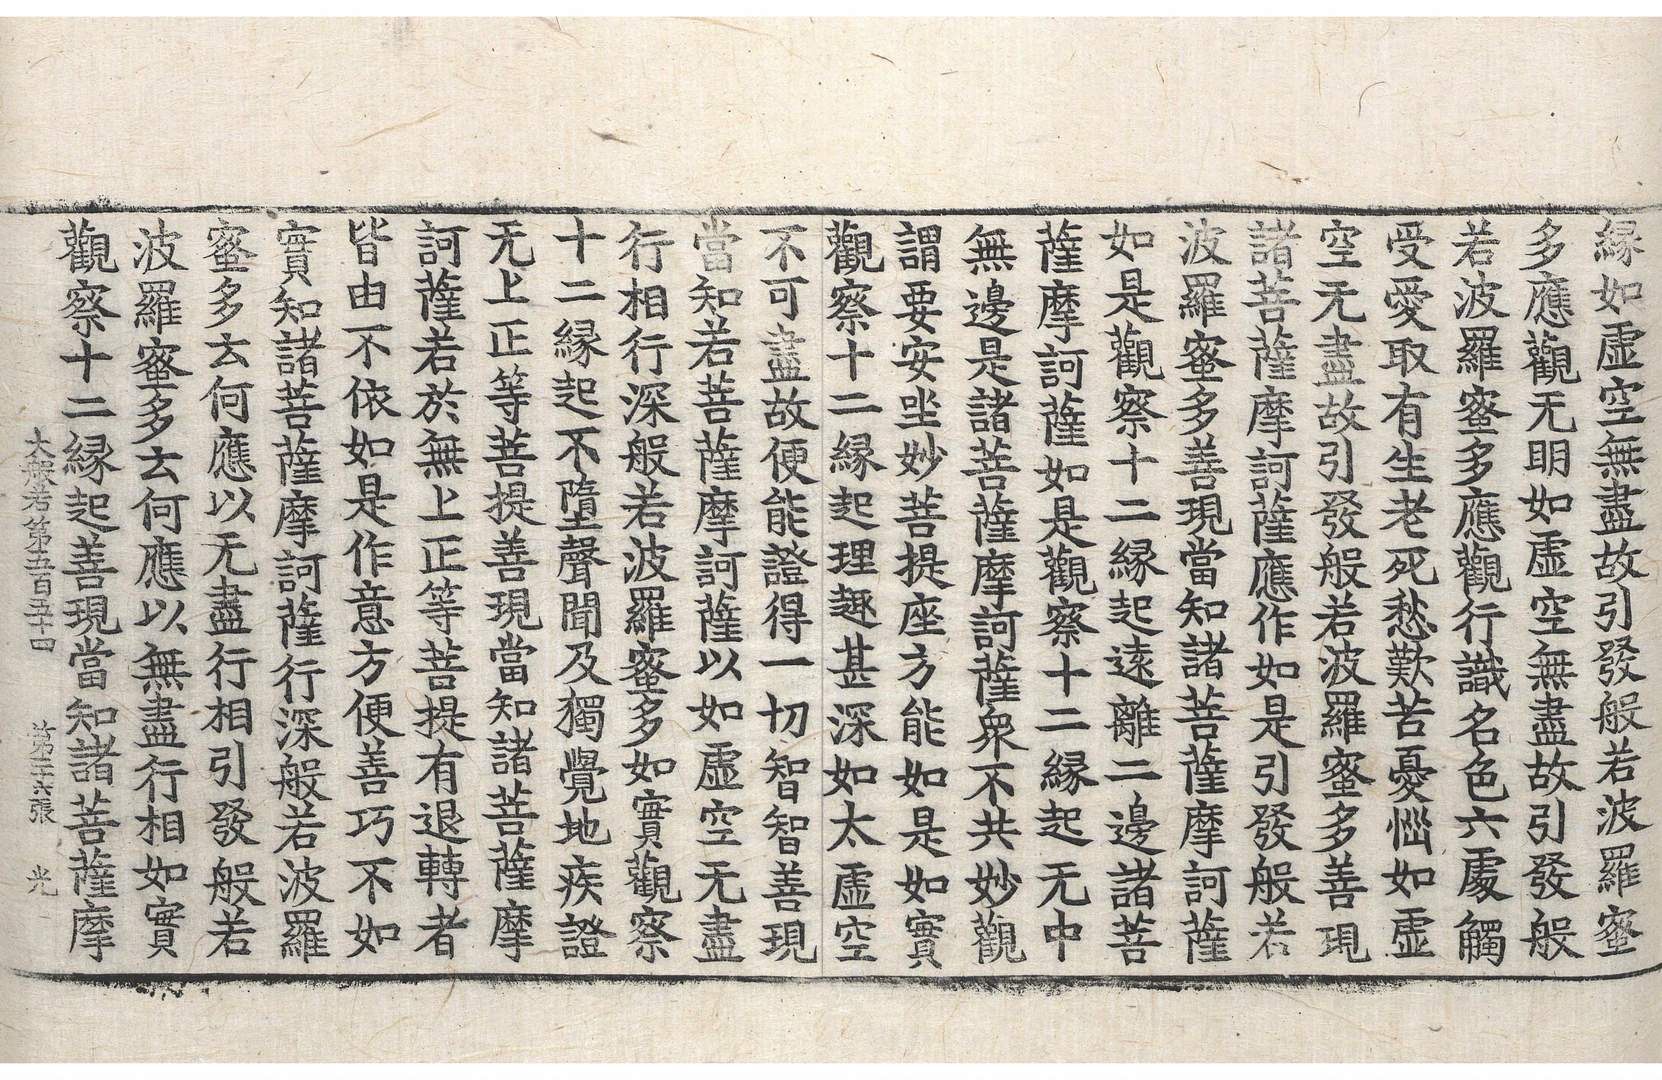 縁如虚空無盡故引發般若波羅蜜
多應觀无明如虚空無盡故引發般
若波羅蜜多應觀行識名色六處觸
受愛取有生老死愁歎苦憂惱如虚
空无盡故引發般若波羅蜜多善現
諸菩薩摩訶薩應作如是引發般若
波羅蜜多善現當知諸菩薩摩訶薩
如是觀察十二縁起遠離二邊諸菩
薩摩訶薩如是觀察十二縁起无中
無邊是諸菩薩摩訶薩衆不共妙觀
謂要安坐妙菩提座方能如是如實
觀察十二縁起理趣甚深如太虚空
不可盡故便能證得一切智智善現
當知若菩薩摩訶薩以如虚空无盡
行相行深般若波羅蜜多如實觀察
十二縁起不墮聲聞及獨覺地疾證
无上正等菩提善現當知諸菩薩摩
訶薩若於無上正等菩提有退轉者
皆由不依如是作意方便善巧不如
實知諸菩薩摩訶薩行深般若波羅
蜜多云何應以无盡行相引發般若
波羅蜜多云何應以無盡行相如實
觀察十二縁起善現當知諸菩薩摩
大般若第五百五十四 第二十六張 光